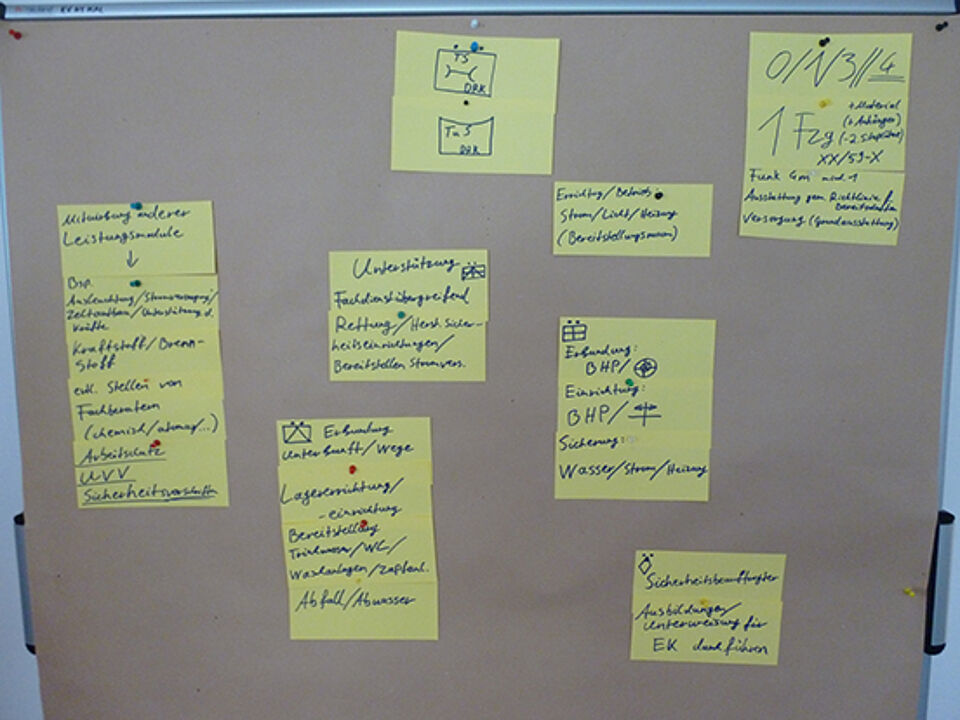 TS
DRK
TuS
DRK
0/1/3//4
1 Fzg
+Material
(+Anhänger)
XX/59-X
Funk 4m mind. 1
Ausstattung gem Richtlinie /
Versorgung (Grundausstattung)
Errichtung/Betrieb:
Strom/Licht/Heizung
(Bereitstellungsraum)
Mitwirkung anderer
Leistungsmodule
↓
Bsp.
Ausleuchtung/Stromversorgung/
Zeltaufbau/Unterstützung d.
Kräfte
Kraftstoff/Brenn-
stoff
evtl. Stellen von
Fachberatern
(chemisch/atomar/...)
Arbeitsschutz
UVV
Sicherheitsvorschriften
Unterstützung
Fachdienstübergreifend
Rettung/Herst. Sicher-
heitseinrichtungen/
Bereitstellen Stromvers.
Erkundung:
BHP/
Einrichtung:
BHP/
Sicherung:
Wasser/Strom/Heizung
Erkundung
Unterkunft/Wege
Lagererrichtung/
-einrichtung
Bereitstellung
Trinkwasser/WC/
Waschanlagen/Zapfanl.
Abfall/Abwasser
Sicherheitsbeauftragter
Ausbildungen/
Unterweisung für
EK durchführen